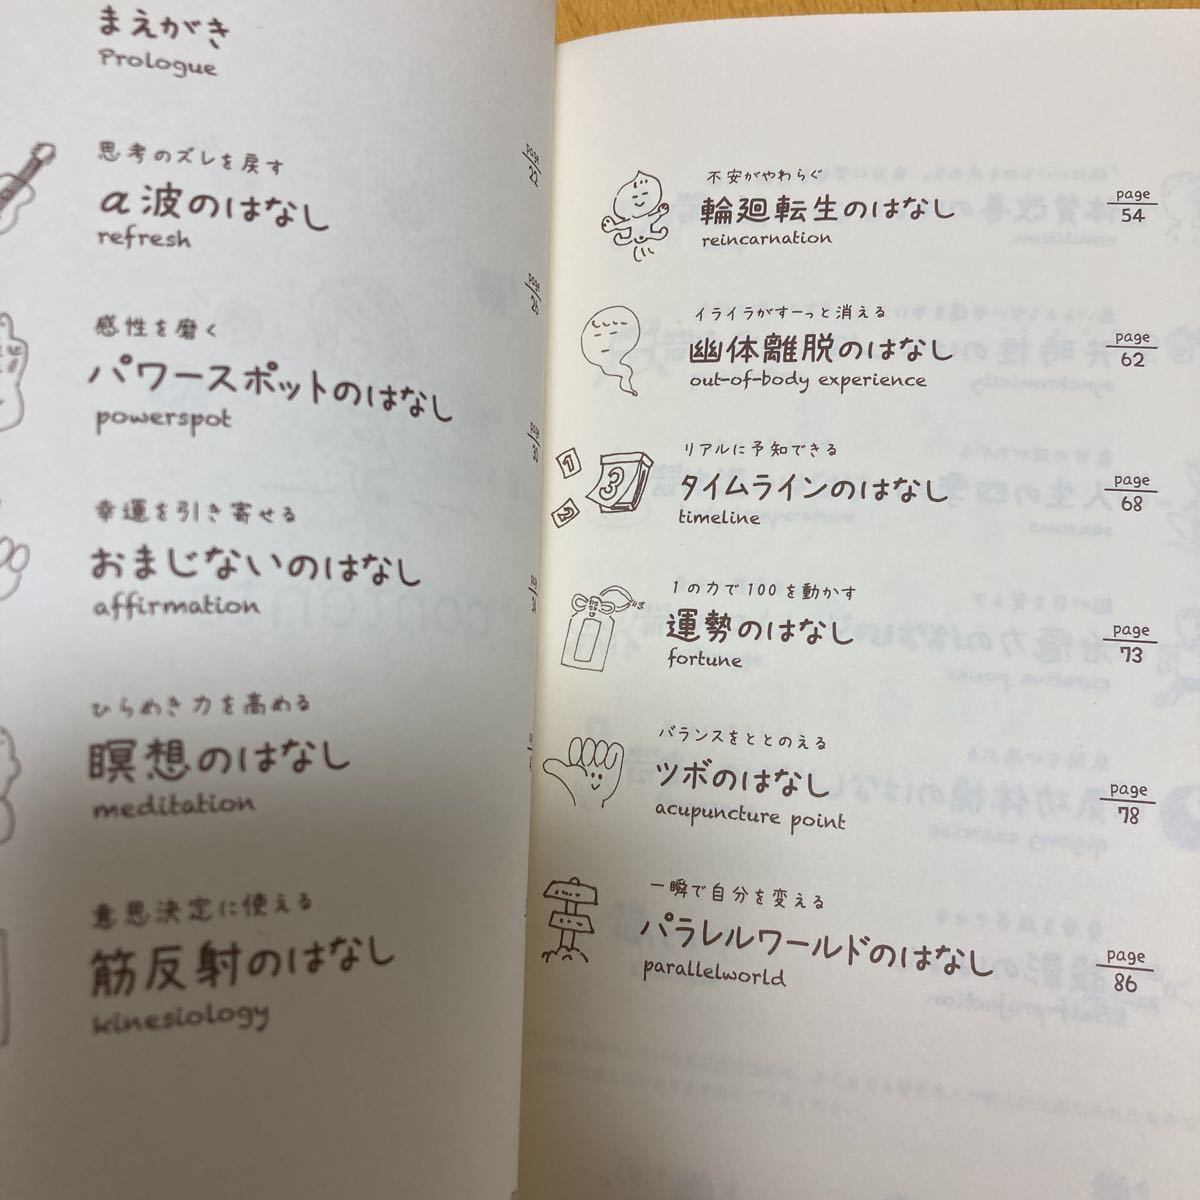 まえがき
Prologue
思考のズレを戻す
α波のはなし
refresh
page
22
感性を磨く
パワースポットのはなし
powerspot
page
26
幸運を引き寄せる
おまじないのはなし
affirmation
page
30
ひらめき力を高める
瞑想のはなし
meditation
意思決定に使える
筋反射のはなし
kinesiology
不安がやわらぐ
輪廻転生のはなし
reincarnation
page
54
イライラがすーっと消える
幽体離脱のはなし
out-of-body experience
page
62
リアルに予知できる
タイムラインのはなし
timeline
page
68
1の力で100を動かす
運勢のはなし
fortune
page
73
バランスをととのえる
ツボのはなし
acupuncture point
page
78
一瞬で自分を変える
パラレルワールドのはなし
parallelworld
page
86